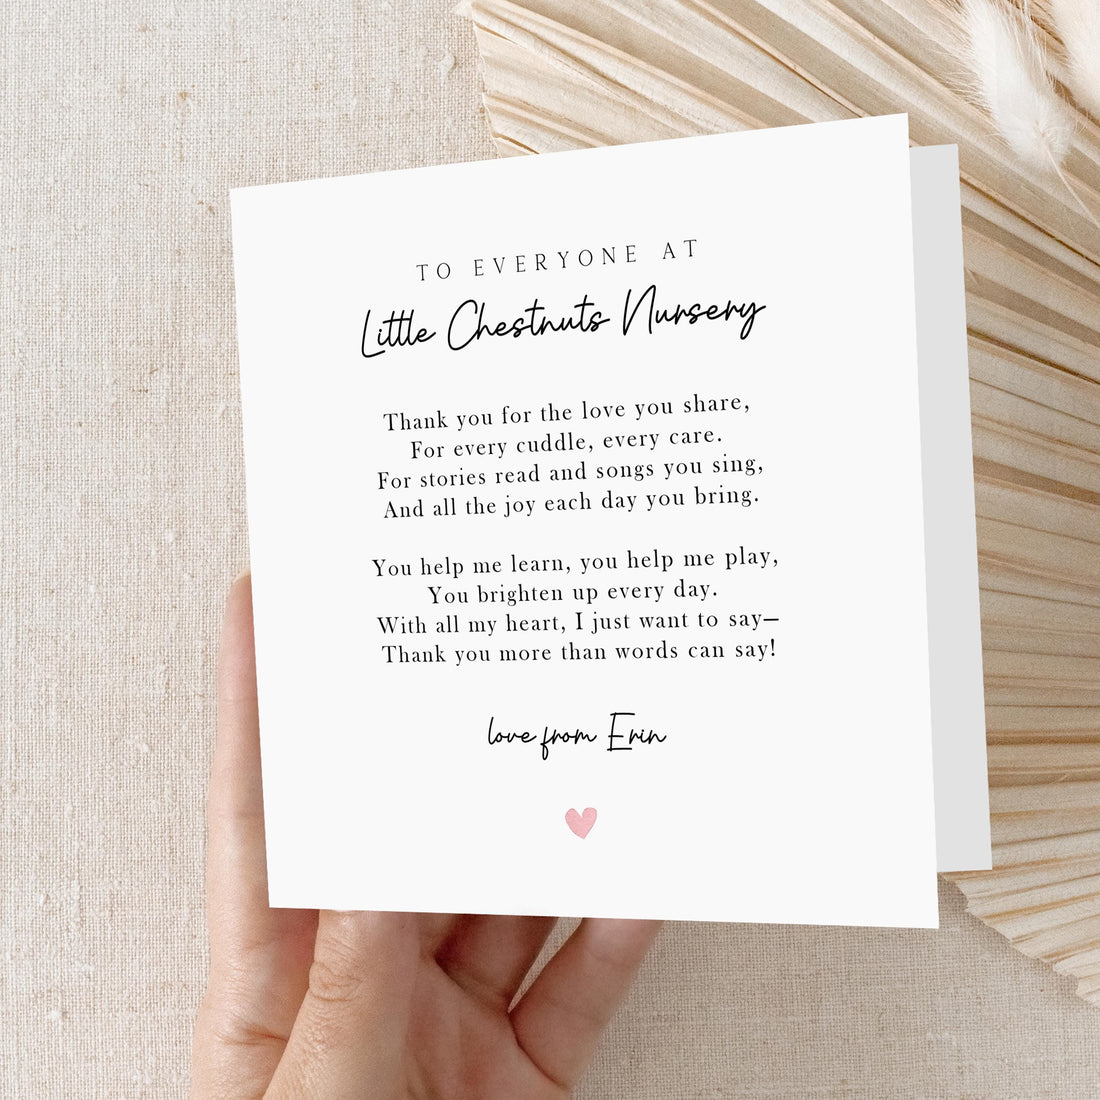 TO EVERYONE AT
Little Chestnuts Nursery
Thank you for the love you share,
For every cuddle, every care.
For stories read and songs you sing,
And all the joy each day you bring.
You help me learn, you help me play,
You brighten up every day.
With all my heart, I just want to say–
Thank you more than words can say!
love from Erin